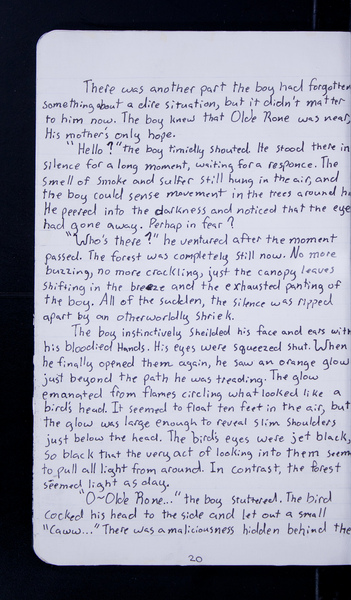 There was another part the boy had forgotten
something about a dire situation, but it didn't matter
to him now. The boy knew that Olde Rone was near,
His mother's only hope.
"Hello?" the boy timidly shouted. He stood there in
silence for a long moment, waiting for a responce. The
smell of smoke and sulfer still hung in the air, and
the boy could sense movement in the trees around
He peered into the darkness and noticed that the eye
had gone away. Perhap in fear?
"Who's there?" he ventured after the moment
passed. The forest was completely still now. No more
buzzing, no more crackling, just the canopy leaves
shifting in the breeze and the exhausted panting of
the boy. All of the sudden, the silence was ripped
apart by an otherworldly shriek.
The boy instinctively sheilded his face and ears with
his bloodied Hands. His eyes were squeezed shut. When
he finally opened them again, he saw an orange glow
just beyond the path he was treading. The glow
emanated from flames circling what looked like a
bird's head. It seemed to float ten feet in the air, but
the glow was large enough to reveal slim shoulders
just below the head. The bird's eyes were jet black,
so black that the very act of looking into them seem
to pull all light from around. In contrast, the forest
seemed light as day.
"O~Olde Rone..." the boy stuttered. The bird
cocked his head to the side and let out a small
"Caww..." There was a maliciousness hidden behind the
20